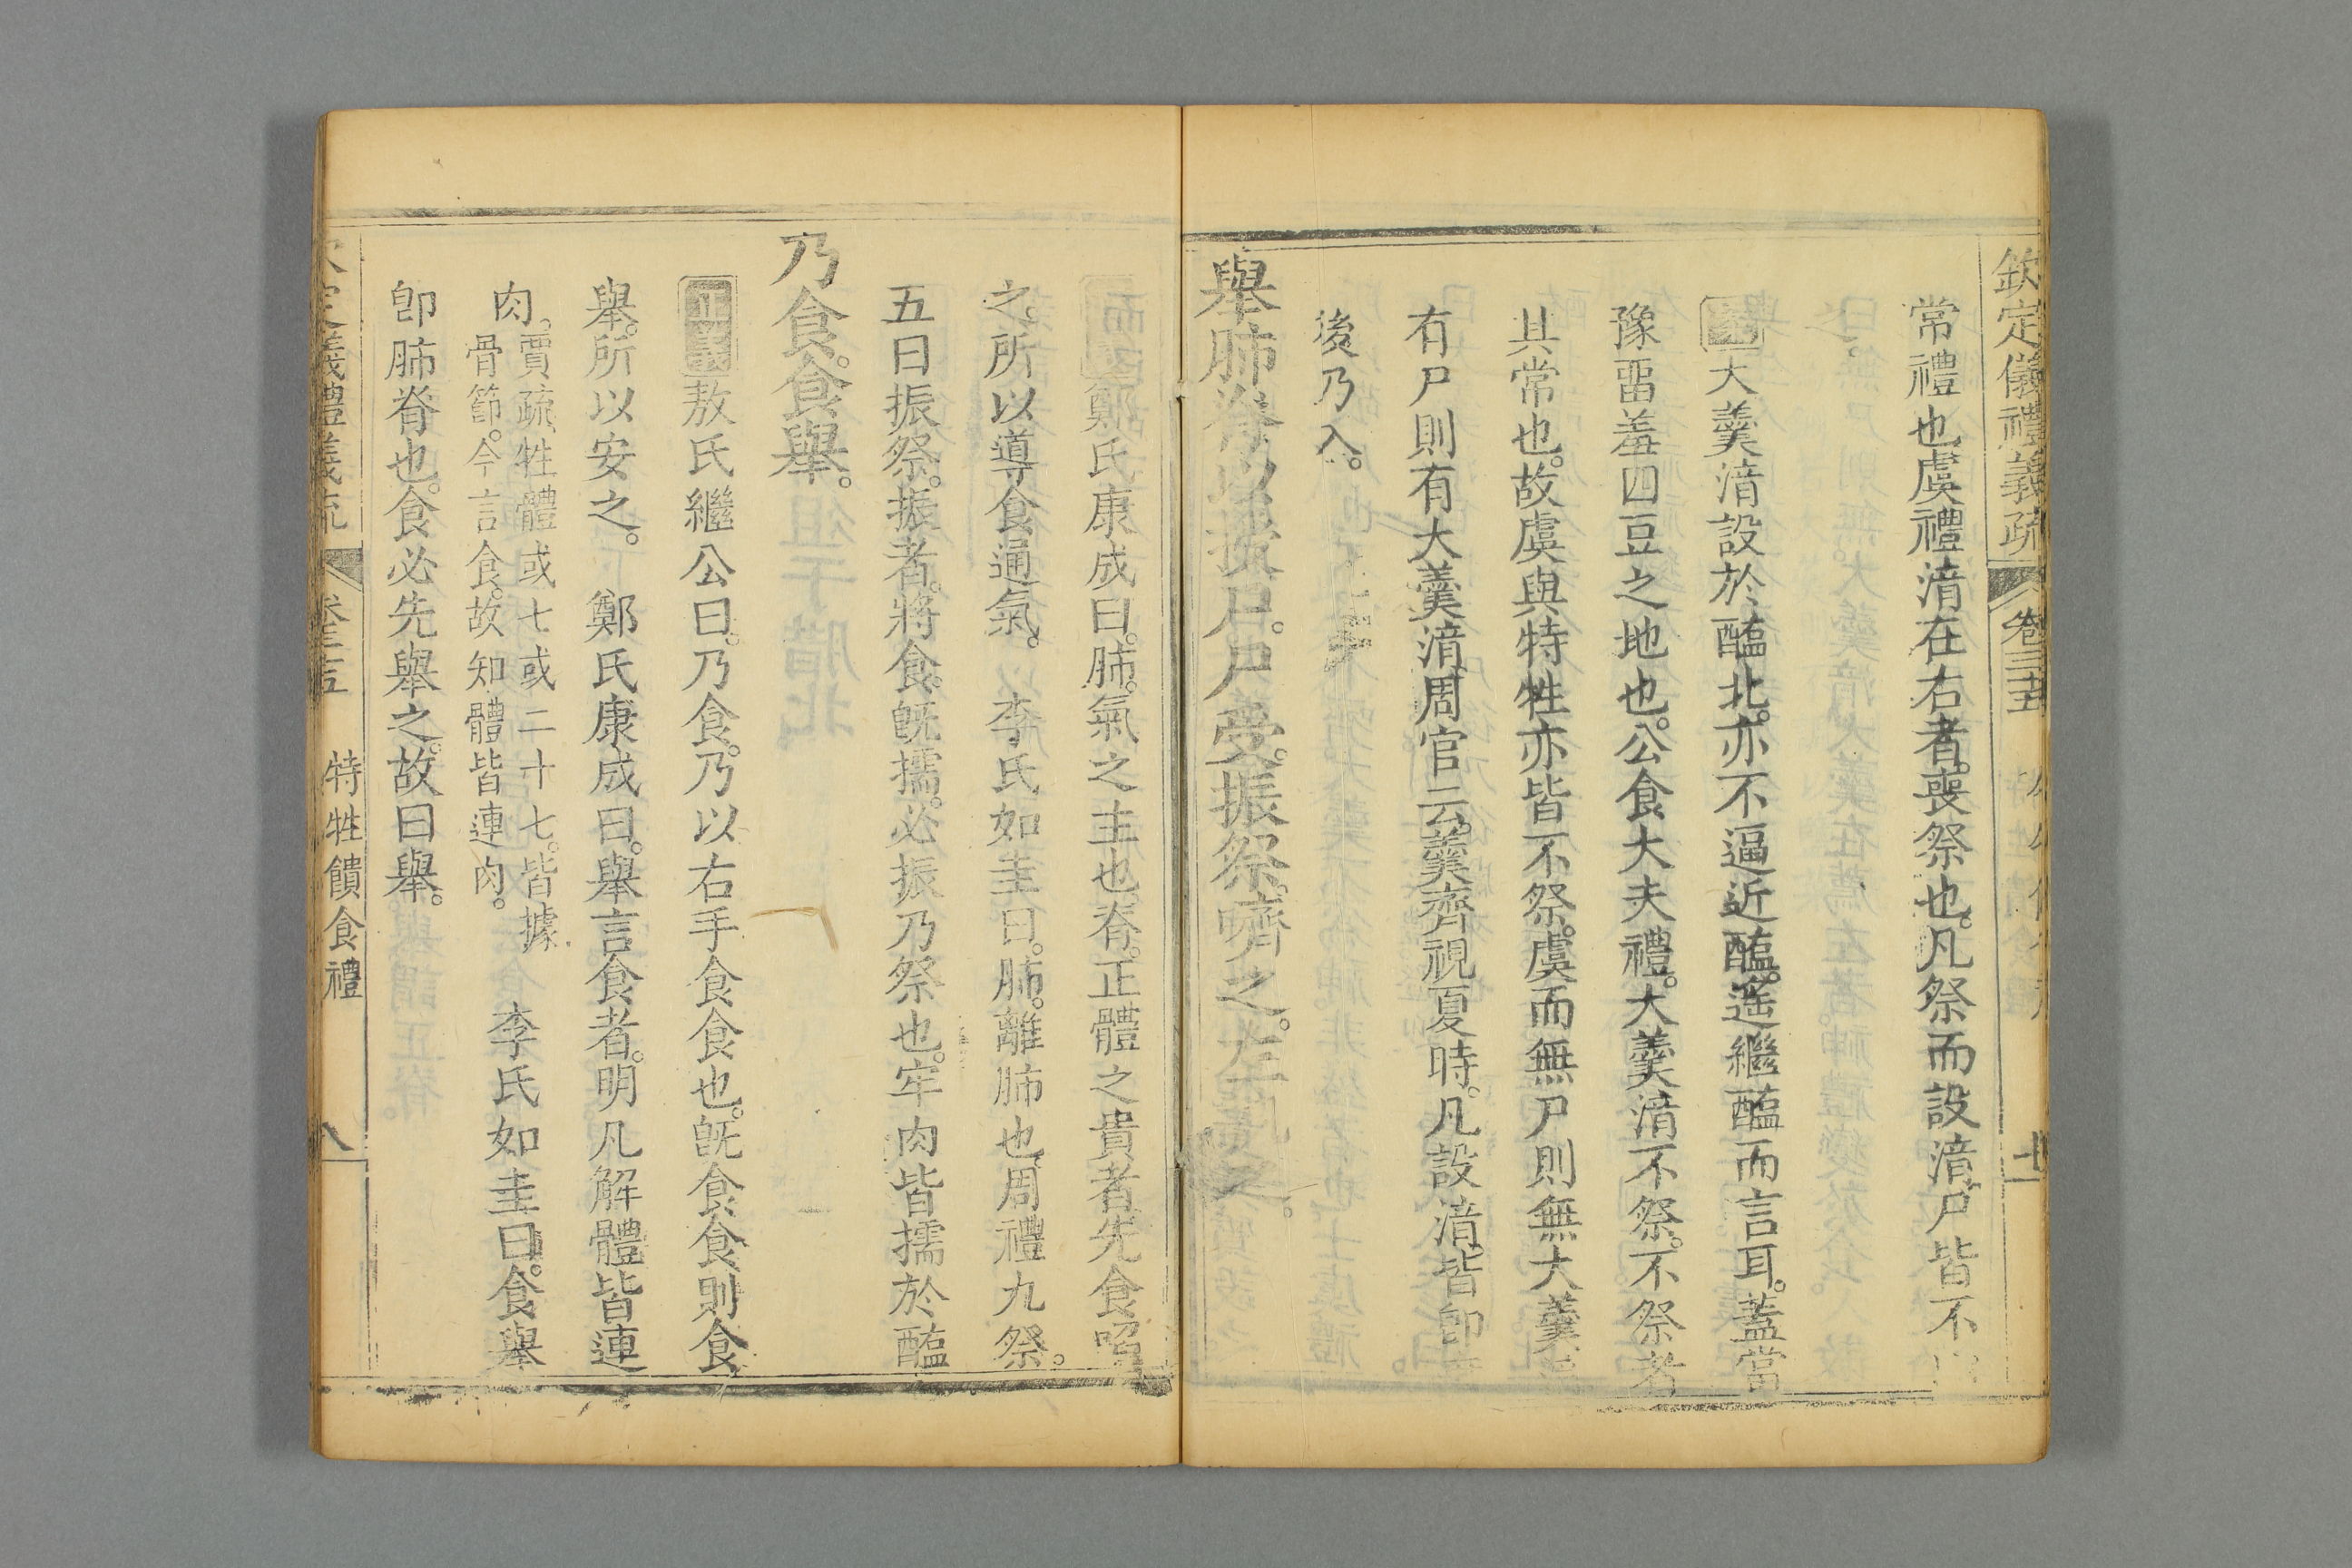 欽定儀禮義疏 卷三十五
常禮也虞禮湆在右者喪祭也凡祭而設湆尸皆不
大羹湆設於醢北亦不逼近醢遥繼醢而言耳蓋當
豫畱羞四豆之地也公食大夫禮大羹湆不祭不祭者
其常也故虞與特牲亦皆不祭虞而無尸則無大羹
有尸則有大羹湆周官云羹齊視夏時凡設湆皆卽
後乃入
舉肺脊以授尸尸受振祭嚌之左執之
鄭氏康成曰肺氣之主也脊正體之貴者先食啗
之所以導食通氣 李氏如圭曰肺離肺也周禮九祭
五曰振祭振者將食旣擩必振乃祭也牢肉皆擩於醢
乃食食舉
正義敖氏繼公曰乃食乃以右手食食也旣食食則食
舉所以安之 鄭氏康成曰舉言食者明凡解體皆連
肉賈疏牲體或七或二十七皆據
骨節今言食故知體皆連肉 李氏如圭曰食舉
卽肺脊也食必先舉之故曰舉
欽定義禮義疏 卷三十五 特牲饋食禮 八